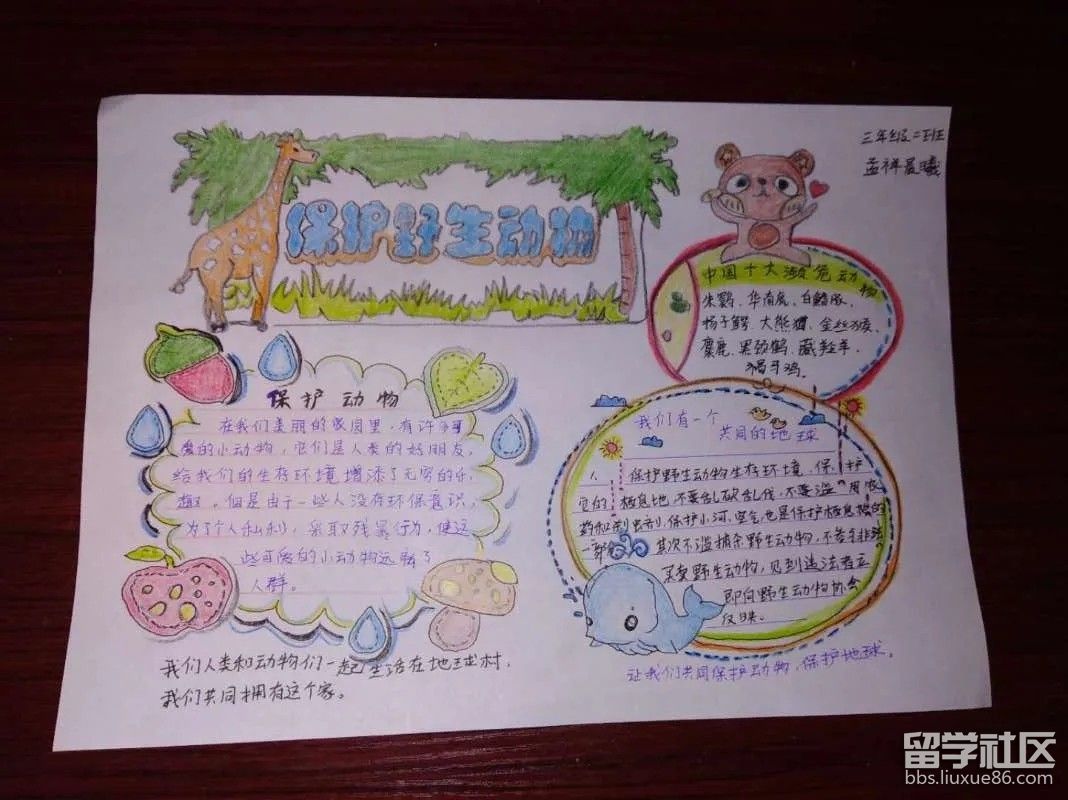 保护野生动物
三年级二班
孟祥晨曦
中国十大濒危动物
朱鹮、华南虎、白鳍豚、
扬子鳄、大熊猫、金丝猴、
麋鹿、黑颈鹤、藏羚羊、
褐马鸡。
保护动物
在我们美丽的家园里,有许多可
爱的小动物,它们是人类的好朋友,
给我们的生存环境增添了无穷的乐
趣。但是由于一些人没有环保意识,
为了个人私利,采取残暴行为,使这
些可爱的小动物远离了
人群。
我们人类和动物们一起生活在地球村,
我们共同拥有这个家。
我们有一个
共同的地球
1、保护野生动物生存环境,保护
它的栖息地,不要乱砍乱伐,不要滥用农
药和杀虫剂,保护小河,空气也是保护栖息地的
一部分。其次不滥捕杀野生动物,不参与非法
买卖野生动物,见到违法者立
即向野生动物协会
反映。
让我们共同保护动物,保护地球。
留学社区
bbs.liuxue86.com